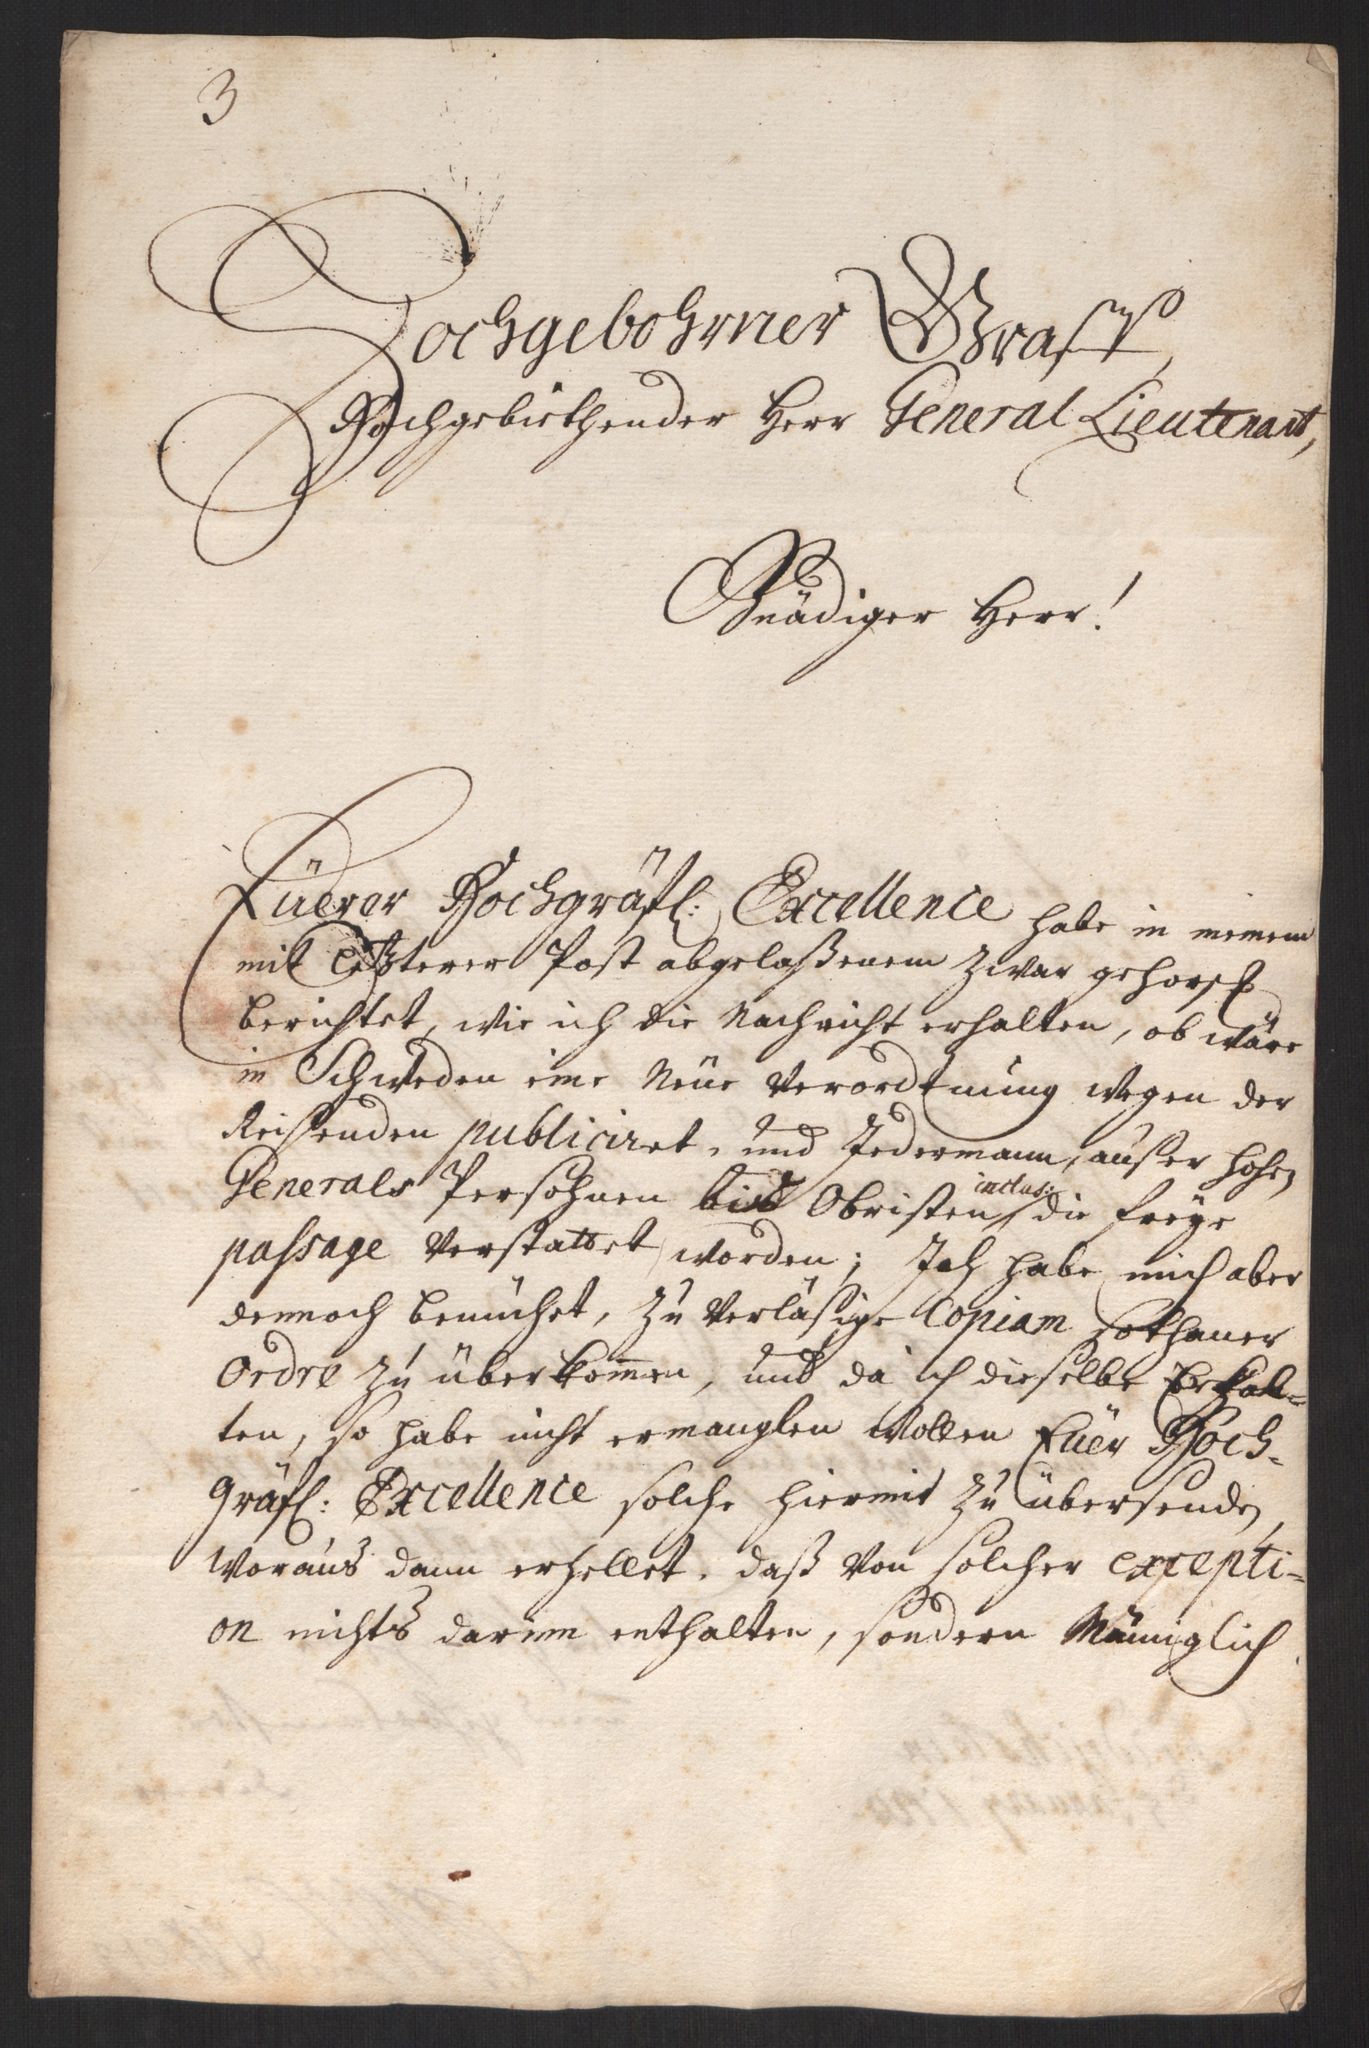 3
Hochgebohrner Graff,
Hochgebiethender Herr General Lieutenant,
Gnädiger Herr!
Eüerer Hochgräfl: Excellence habe in meinem
mit letzterer Post abgelaßenem zwar gehorsl
berichtet, wie ich die Nachricht erhalten, ob wäre
in Schweden eine Neüe Verordtnung wegen der
Reisenden publiciret, und Jedermann, außer hohen
Generals Persohnen biß Obristen inclus: die freÿe
passage verstattet worden; Ich habe mich aber
dennoch bemühet, zu verläßige Copiam sothaner
Ordre zu überkommen, und da ich dieselbe Erhal-
ten, so habe nicht ermanglen wollen Eüer Hoch-
Gräfl: Excellence solche hiermit zu übersenden,
Woraus dann erhellet, daß von solcher excepti-
on nichts darinn enthalten, sondern Männiglich